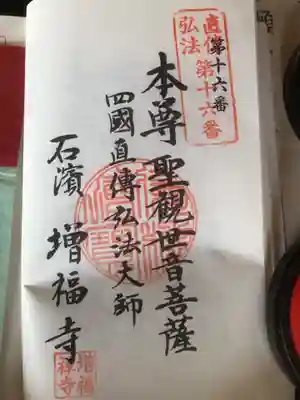 直傳弘法 第十六番
第十六番
本尊聖觀世音菩薩
四國直傳弘法大師
石濱 增福寺
增福禅寺